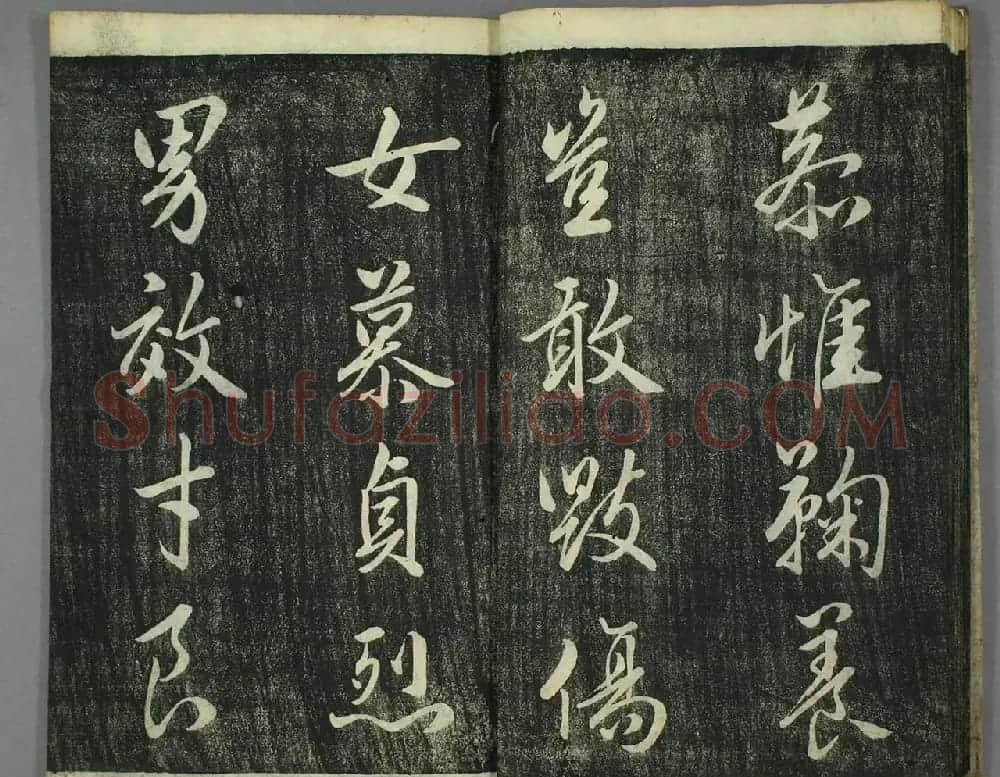 恭惟鞠養
豈敢毀傷
女慕貞烈
男效才良
Shufaziliao.COM